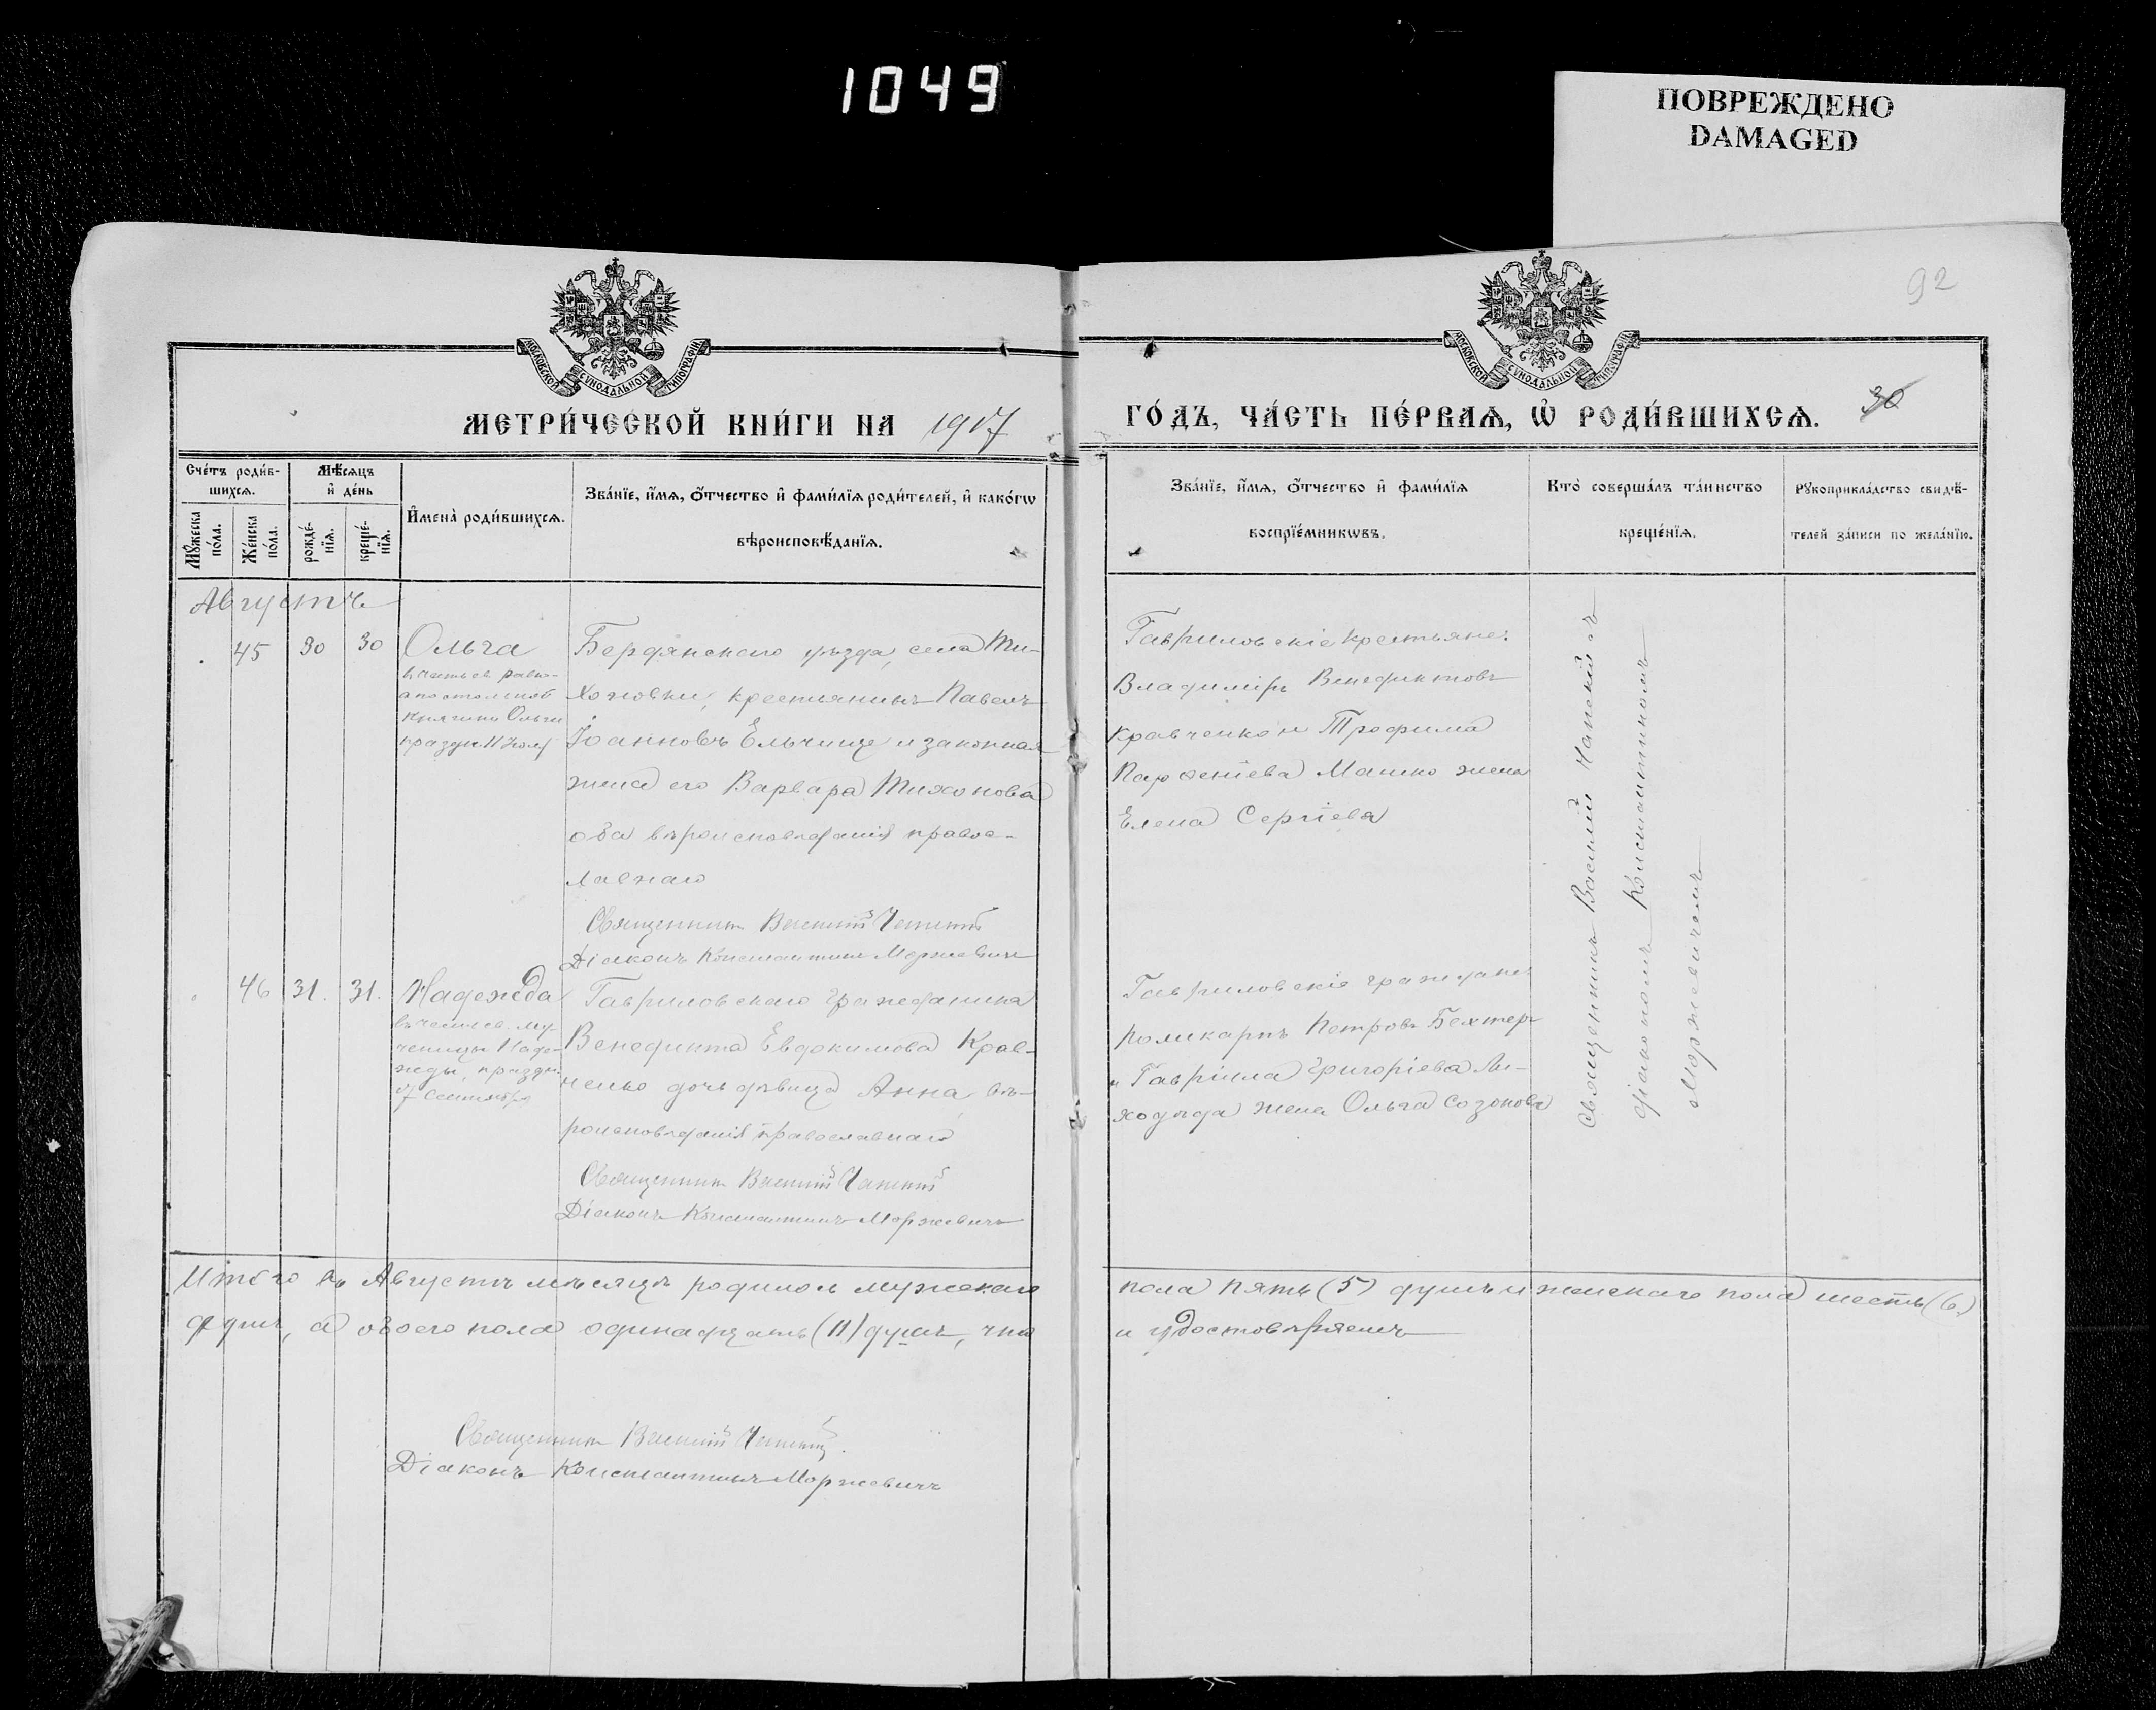 1049
ПОВРЕЖДЕНО
DAMAGED
92
МОСКОВСКОЙ СѴНОДАЛЬНОЙ ТИПОГРАФІИ
МОСКОВСКОЙ СѴНОДАЛЬНОЙ ТИПОГРАФІИ
МЕТРИ́ЧЕСКОЙ КНИ́ГИ НА 1917
ГО́ДЪ, ЧА́СТЬ ПЕ́РВАѦ, Ѡ҆ РОДИ́ВШИХСѦ.
30
Сче́тъ роди́в-
шихсѧ.
Мꙋ́жеска
по́ла.
Же́нска
по́ла.
Мѣ́сѧцъ
и҆ де́нь
рожде́-
нїѧ.
креще́-
нїѧ.
И҆мена̀ роди́вшихсѧ.
Зва́нїе, и҆́мѧ, ѻ҆́тчество и҆ фами́лїѧ роди́телей, и҆ како́гѡ
вѣроисповѣ́данїѧ.
Зва́нїе, и҆́мѧ, ѻ҆́тчество и҆ фами́лїѧ
воспрїе́мникѡвъ.
Кто̀ соверша́лъ та́инство
креще́нїѧ.
Рꙋкоприкла́дство свидѣ́-
телей за́писи по жела́нїю.
Августъ
45 30 30 Ольга
въ честь св. равно-
апостольной
княгини Ольги
праздн. 11 Іюля
Бердянскаго уѣзда, села Ти-
хоновки, крестьянинъ Павелъ
Іоанновъ Ельчище и законная
жена его Варвара Тихонова
оба вѣроисповѣданія правос-
лавнаго
Священникъ Василій
Діаконъ Константинъ Моржевичъ
Гавриловскіе крестьяне:
Владиміръ Венедиктовъ
Кравченко и Трофима
Парѳеніева Машко жена
Елена Сергіева
Священникъ Василій
діакономъ Константиномъ
Моржевичемъ
46 31. 31. Надежда
въ честь св. му-
ченицы Наде-
жды, праздн.
17 Сентября
Гавриловскаго гражданина
Венедикта Евдокимова Крав-
ченко дочь дѣвица Анна, вѣ-
роисповѣданія православнаго
Священникъ Василій
Діаконъ Константинъ Моржевичъ
Гавриловскіе граждане
Поликарпъ Петровъ Бехтеръ
и Гавріила Григоріева Ли-
ходѣда жена Ольга Созонова
Итого въ Августѣ мѣсяцѣ родилось мужескаго
пола пять (5) душъ и женскаго пола шесть (6)
душъ, а обоего пола одинадцать (11) душъ, что
и удостовѣряемъ
Священникъ Василій
Діаконъ Константинъ Моржевичъ